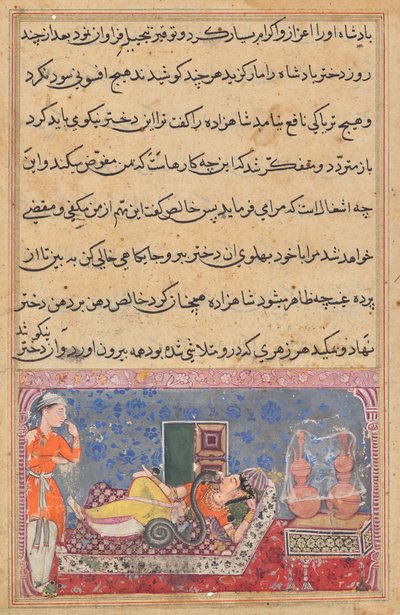 پادشاه او را اعزاز و اکرام بسیار کرد و توقیر و تبجیل فراوان نمود بعد از چند
روز دختر پادشاه را مار گزید هر چند کوشیدند هیچ افسونی سود نکرد
و هیچ تریاکی نافع نیامد شاهزاده را گفت ترا این دختر نیکوی باید کرد
باز متردد و متفکر شد که این چه کارهاست که بمن مفوض میکند و این
چه اشغالست که مرا می فرماید پس خالص گفت این مهم از من مکفی و مقضی
خواهد شد مرا با خود بپهلوی آن دختر ببر و جایگاهی خالی کن به بین تا از
پرده غیب چه ظاهر میشود شاهزاده همچنان کرد خالص دهن بر دهن دختر
نهاد و بمکید هر زهری که درو متلاشی شده بود همه بیرون آورد و آن دختر نیکو شد